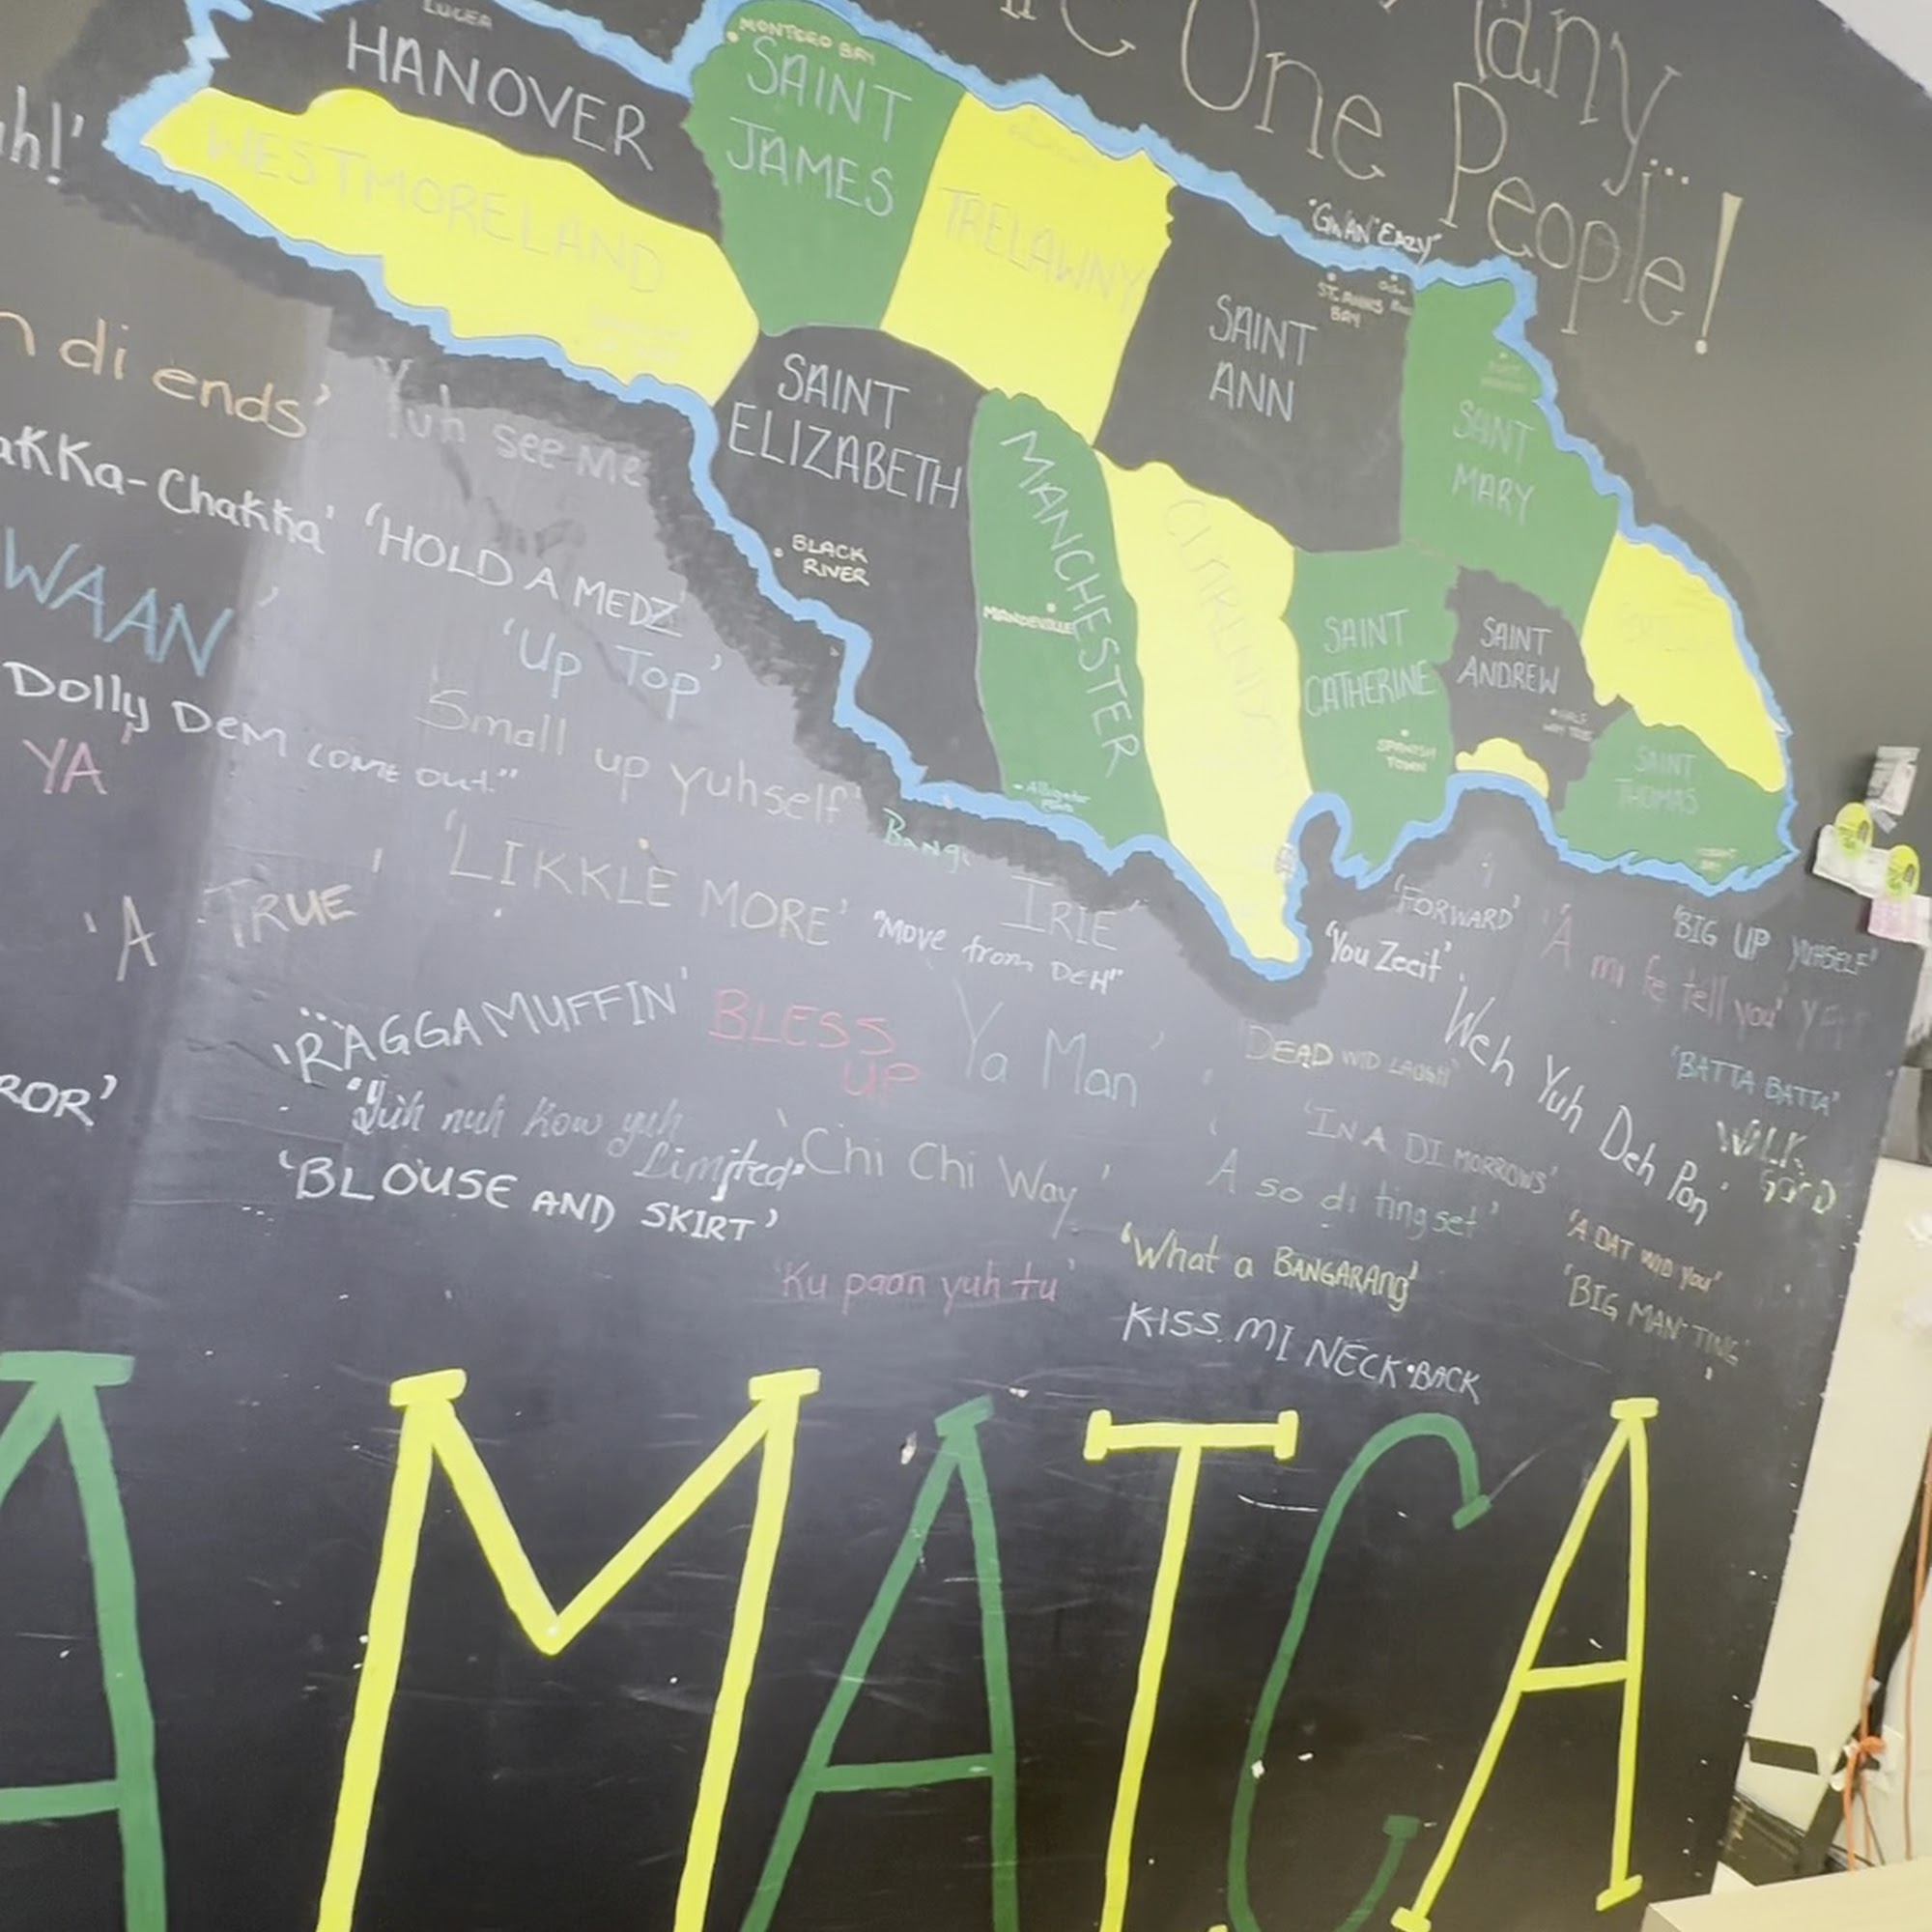 any...
One People!
LUCEA
HANOVER
MONTEGO BAY
SAINT
JAMES
WESTMORELAND
TRELAWNY
"GWAN EAZY"
ST. ANNS
BAY
SAINT
ANN
SAINT
MARY
SAINT
ELIZABETH
BLACK
RIVER
MANCHESTER
MANDEVILLE
Alligator
CLARENDON
SAINT
CATHERINE
SPANISH
TOWN
SAINT
ANDREW
HALF
WAY TREE
SAINT
THOMAS
uh!'
di ends'
Yuh see me
akka-Chakka'
'HOLD A MEDZ'
WAAN'
'Up Top'
Dolly Dem come out"
'Small up yuhself'
YA'
'LIKKLE MORE'
Bang
IRIE'
"Move from DEH"
'A TRUE'
'FORWARD'
'You Zeeit'
'A mi fe tell you'
'BIG UP YUHSELF'
'RAGGAMUFFIN'
BLESS
UP
Ya Man'
'DEAD WID LAUGH'
Weh Yuh Deh Pon'
'BATTA BATTA'
ROR'
"Yuh nuh kow yuh
Limited"
'Chi Chi Way'
'IN A DI MORROWS'
WALK
GOOD
'BLOUSE AND SKIRT'
'A so di ting set'
'Ku paon yuh tu'
'What a BANGARANG'
'A DAT WID YOU'
'BIG MAN TING'
KISS MI NECK BACK
AMAICA